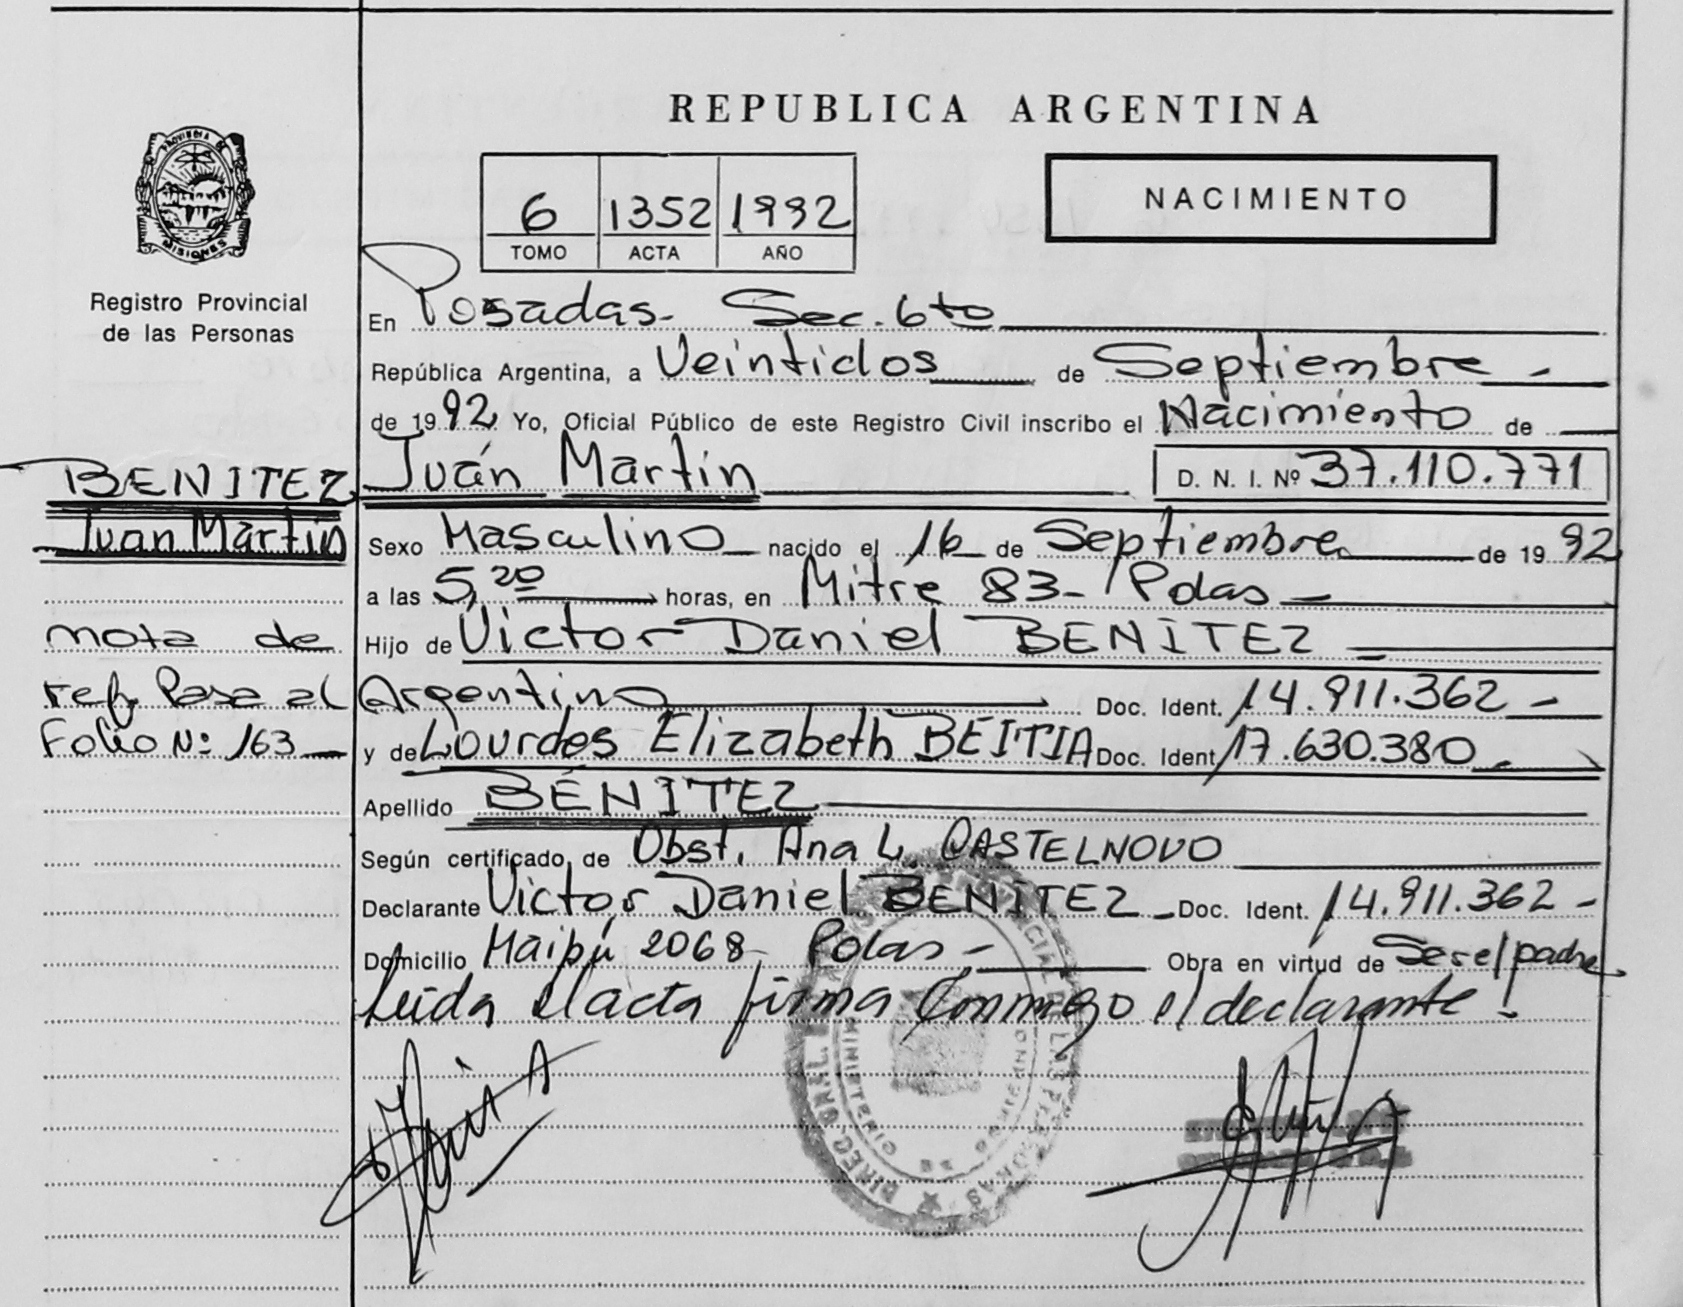 REPUBLICA ARGENTINA
PROVINCIA DE
MISIONES
Registro Provincial
de las Personas
6 1352 1992
TOMO ACTA AÑO
NACIMIENTO
En Posadas- Sec. 6to
República Argentina, a Veintidos de Septiembre -
de 1992 Yo, Oficial Público de este Registro Civil inscribo el Nacimiento de
BENITEZ Juán Martín D. N. I. Nº 37.110.771
Juan Martín
Sexo Masculino nacido el 16 de Septiembre de 1992
a las 5,20 horas, en Mitre 83- Pdas -
nota de Hijo de Victor Daniel BENITEZ
ref. Pasa al Argentino Doc. Ident. 14.911.362 -
Folio Nº 163 y de Lourdes Elizabeth BEITIA Doc. Ident. 17.630.380 -
Apellido BENITEZ
Según certificado de Obst. Ana L. CASTELNOVO
Declarante Victor Daniel BENITEZ - Doc. Ident. 14.911.362 -
Domicilio Maipú 2068- Pdas - Obra en virtud de Ser el padre
Leida el acta firma conmigo el declarante